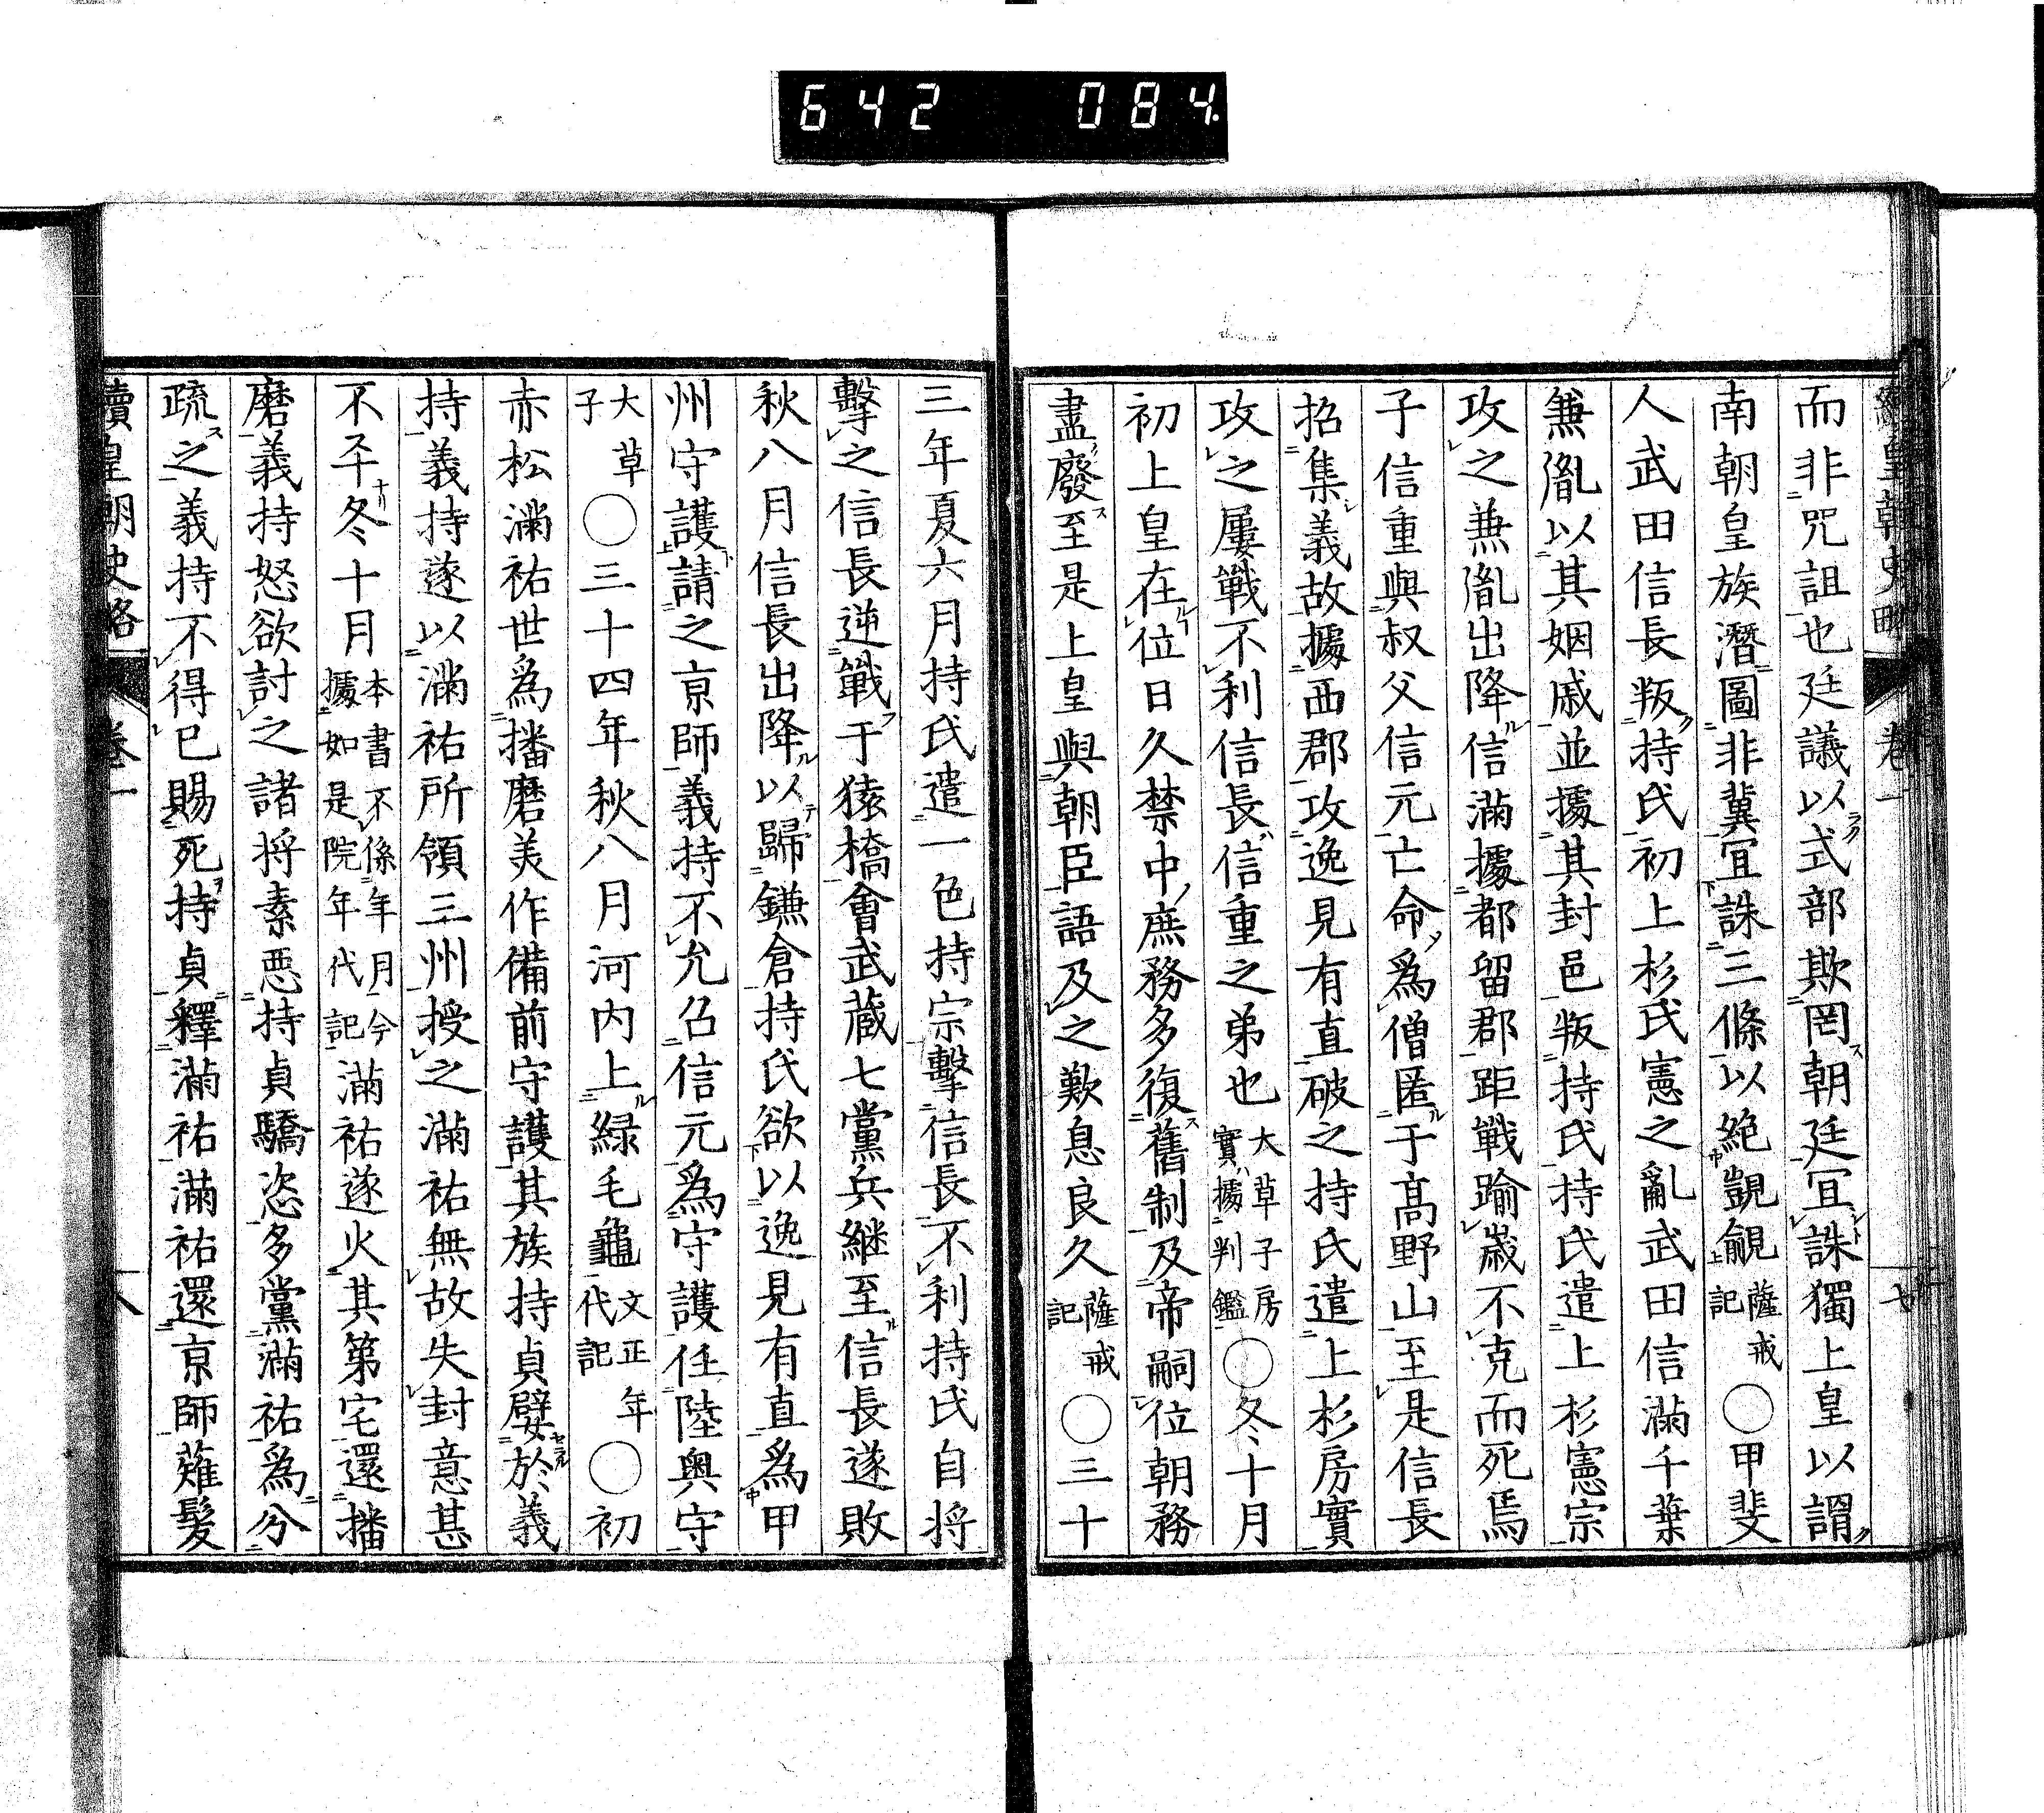 642 084.
續皇朝史略 卷一 七
而非咒詛也廷議以式部欺罔朝廷宜誅獨上皇以謂
南朝皇族潛圖非冀宜誅三條以絶覬覦薩戒記〇甲斐
人武田信長叛持氏初上杉氏憲之亂武田信滿千葉
兼胤以其姻戚並據其封邑叛持氏持氏遣上杉憲宗
攻之兼胤出降信滿據都留郡距戰踰歲不克而死焉
子信重與叔父信元亡命爲僧匿于高野山至是信長
招集義故據西郡攻逸見有直破之持氏遣上杉房實
攻之屢戰不利信長信重之弟也大草子房實據判鑑〇冬十月
初上皇在位日久禁中庶務多復舊制及帝嗣位朝務
盡廢至是上皇與朝臣語及之歎息良久薩戒記〇三十
三年夏六月持氏遣一色持宗擊信長不利持氏自将
擊之信長逆戰于猿橋會武蔵七黨兵継至信長遂敗
秋八月信長出降以歸鎌倉持氏欲以逸見有直爲甲
州守護請之京師義持不允召信元爲守護任陸奥守
大草子〇三十四年秋八月河内上緑毛龜文正年代記〇初
赤松滿祐世爲播磨美作備前守護其族持貞嬖於義
持義持遂以滿祐所領三州授之滿祐無故失封意甚
不平冬十月本書不係年月今據如是院年代記滿祐遂火其第宅還播
磨義持怒欲討之諸将素惡持貞驕恣多黨滿祐爲分
疏之義持不得已賜死持貞釋滿祐滿祐還京師薙髮
續皇朝史略 卷一 八